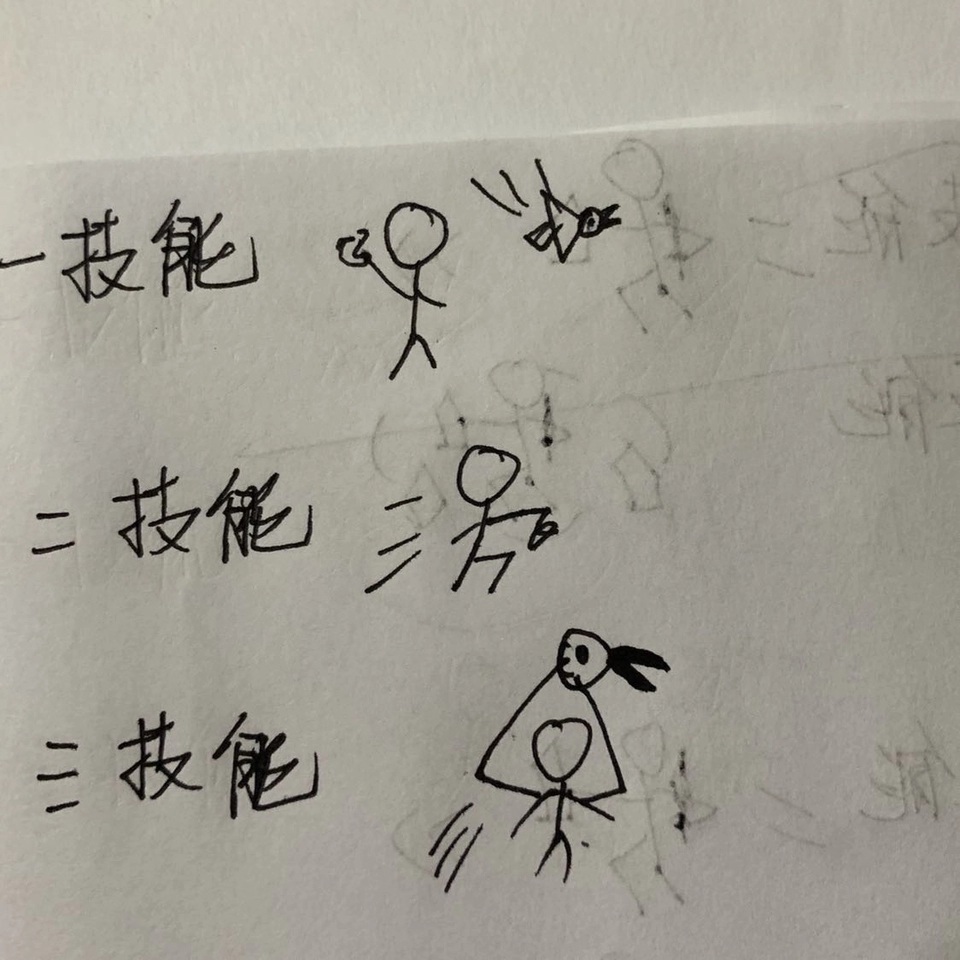 一技能
二技能
三技能